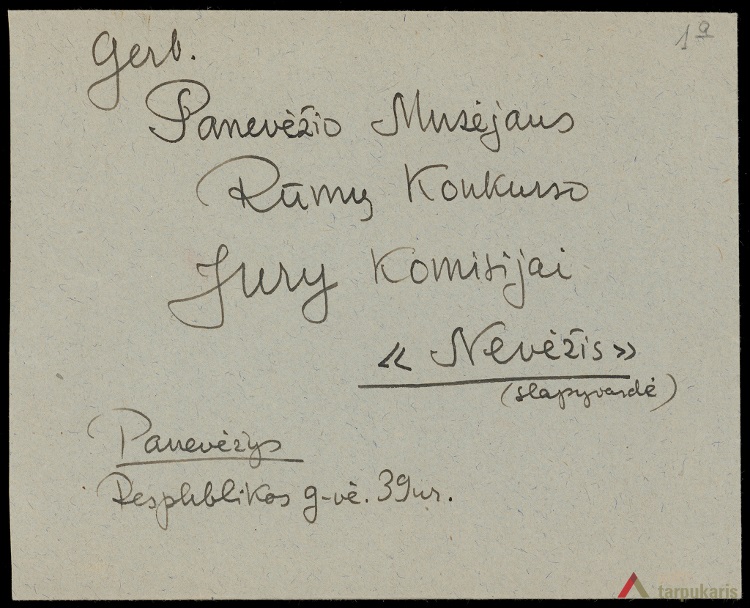 1a
Gerb.
Panevėžio Musėjaus
Rūmų Konkurso
Jury Komisijai
« Nevėžis »
(slapyvardė)
Panevėžys
Respublikos g-vė. 39 nr.
tarpukaris